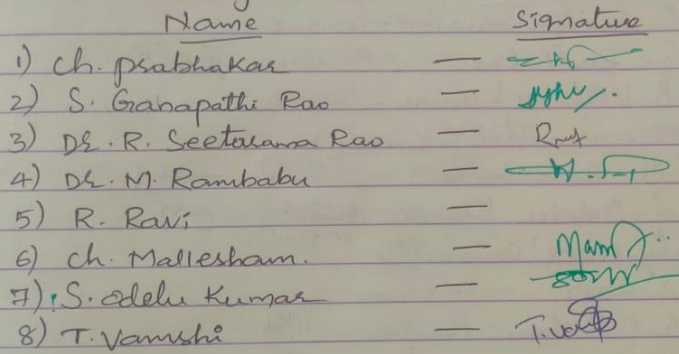 Name Signature
1) Ch. Prabhakar —
2) S. Ganapathi Rao —
3) Dr. R. Seetarama Rao —
4) Dr. M. Rambabu —
5) R. Ravi —
6) Ch. Mallesham. —
7) S. Odelu Kumar —
8) T. Vamshi —